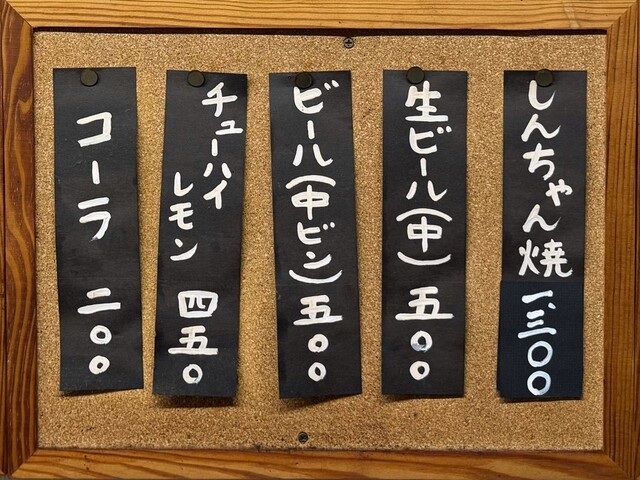 しんちゃん焼 一、三〇〇
生ビール(中) 五〇〇
ビール(中ビン) 五〇〇
チューハイ
レモン 四五〇
コーラ 二〇〇